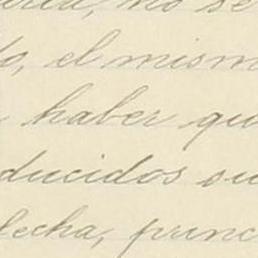 no se
o, el mism
haber qu
ducidos su
fecha, princ